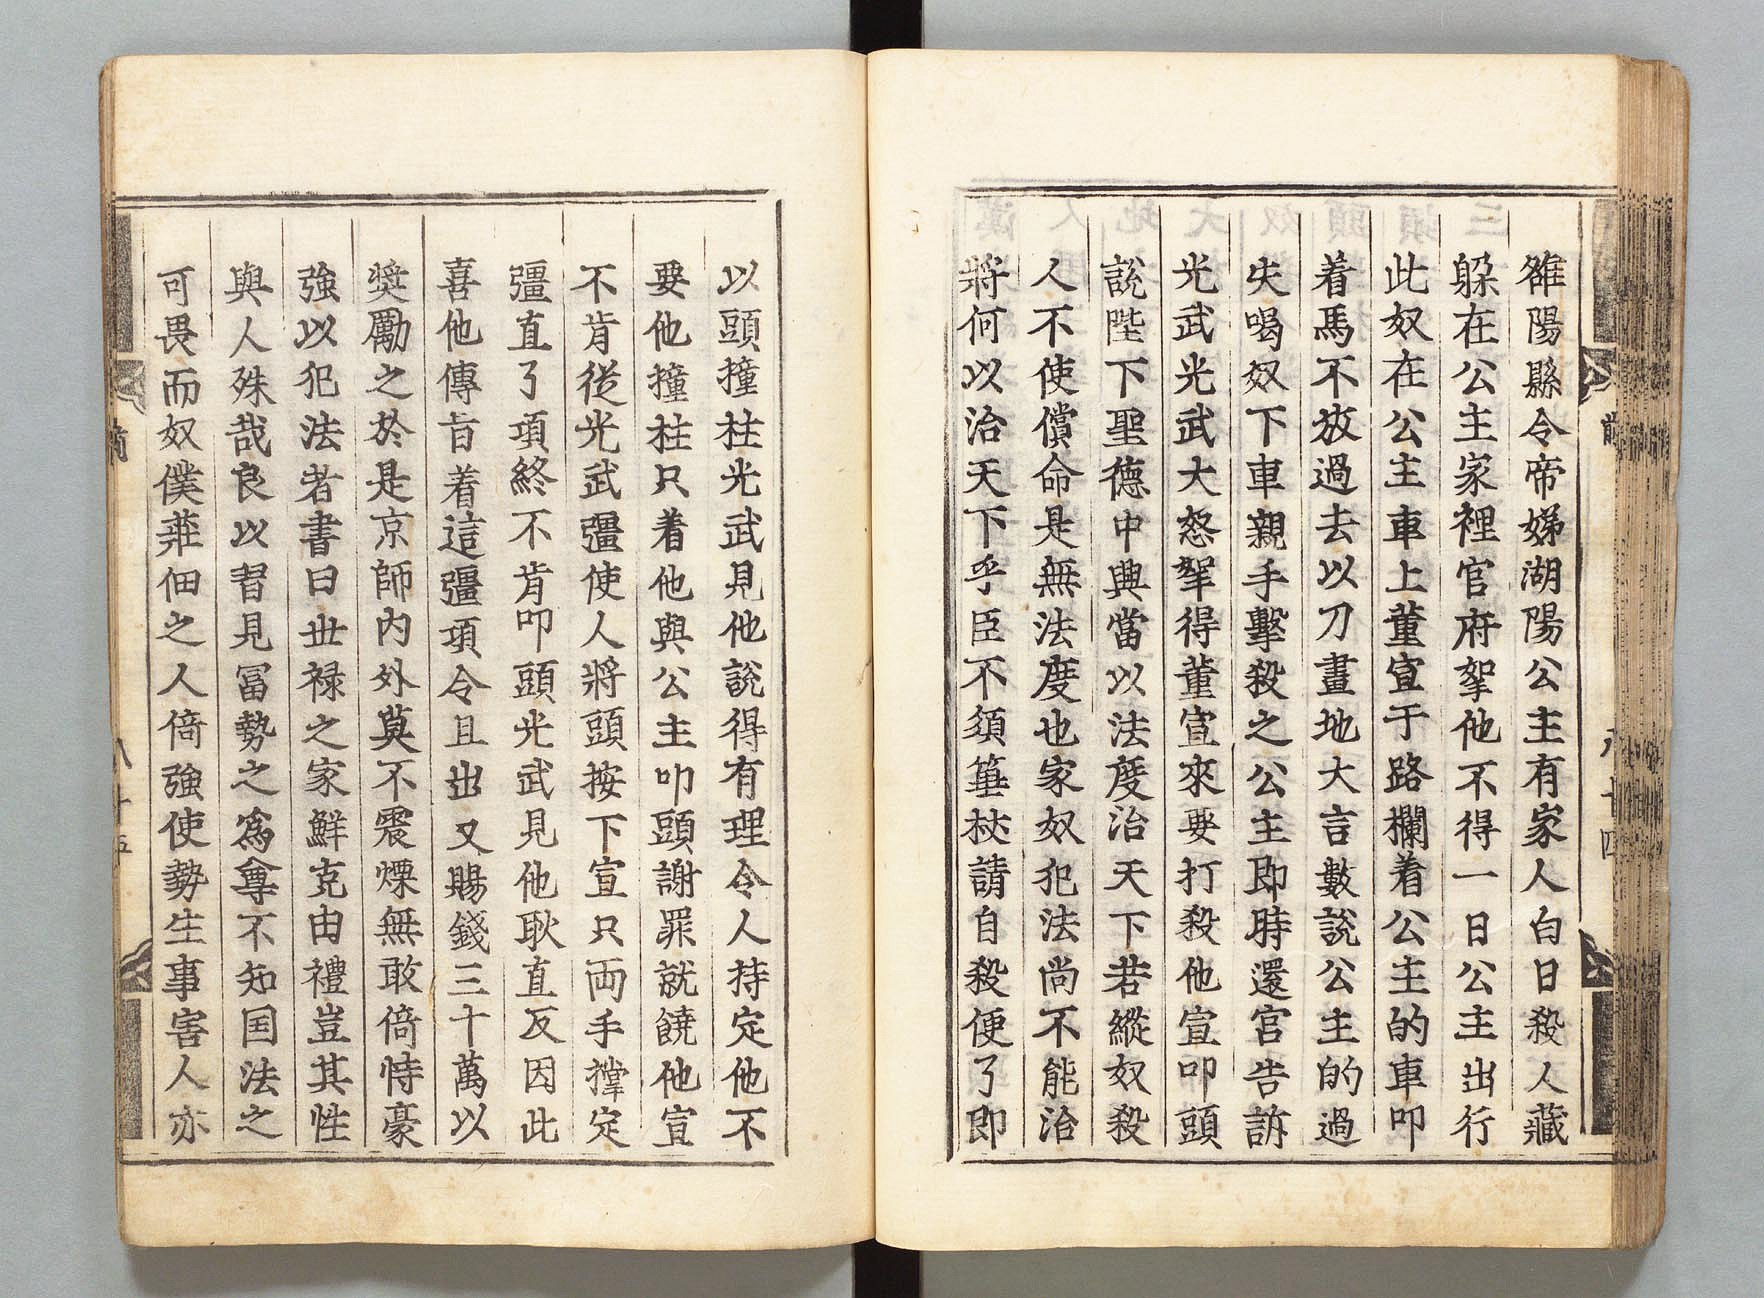 雒陽縣令帝娣湖陽公主有家人白日殺人藏
躱在公主家裡官府拏他不得一日公主出行
此奴在公主車上董宣于路欄着公主的車叩
着馬不放過去以刀畫地大言數說公主的過
失喝奴下車親手擊殺之公主即時還宮告訴
光武光武大怒拏得董宣來要打殺他宣叩頭
說陛下聖德中興當以法度治天下若縱奴殺
人不使償命是無法度也家奴犯法尚不能治
將何以治天下乎臣不須箠杖請自殺便了即
以頭撞柱光武見他說得有理令人持定他不
要他撞柱只着他與公主叩頭謝罪就饒他宣
不肯從光武彊使人將頭按下宣只両手撑定
彊直了項終不肯叩頭光武見他耿直反因此
喜他傳旨着這彊項令且出又賜錢三十萬以
奬勵之於是京師內外莫不震慄無敢倚恃豪
強以犯法者書曰世禄之家鮮克由禮豈其性
與人殊哉良以習見冨勢之為尊不知国法之
可畏而奴僕莊佃之人倚強使勢生事害人亦
八十五